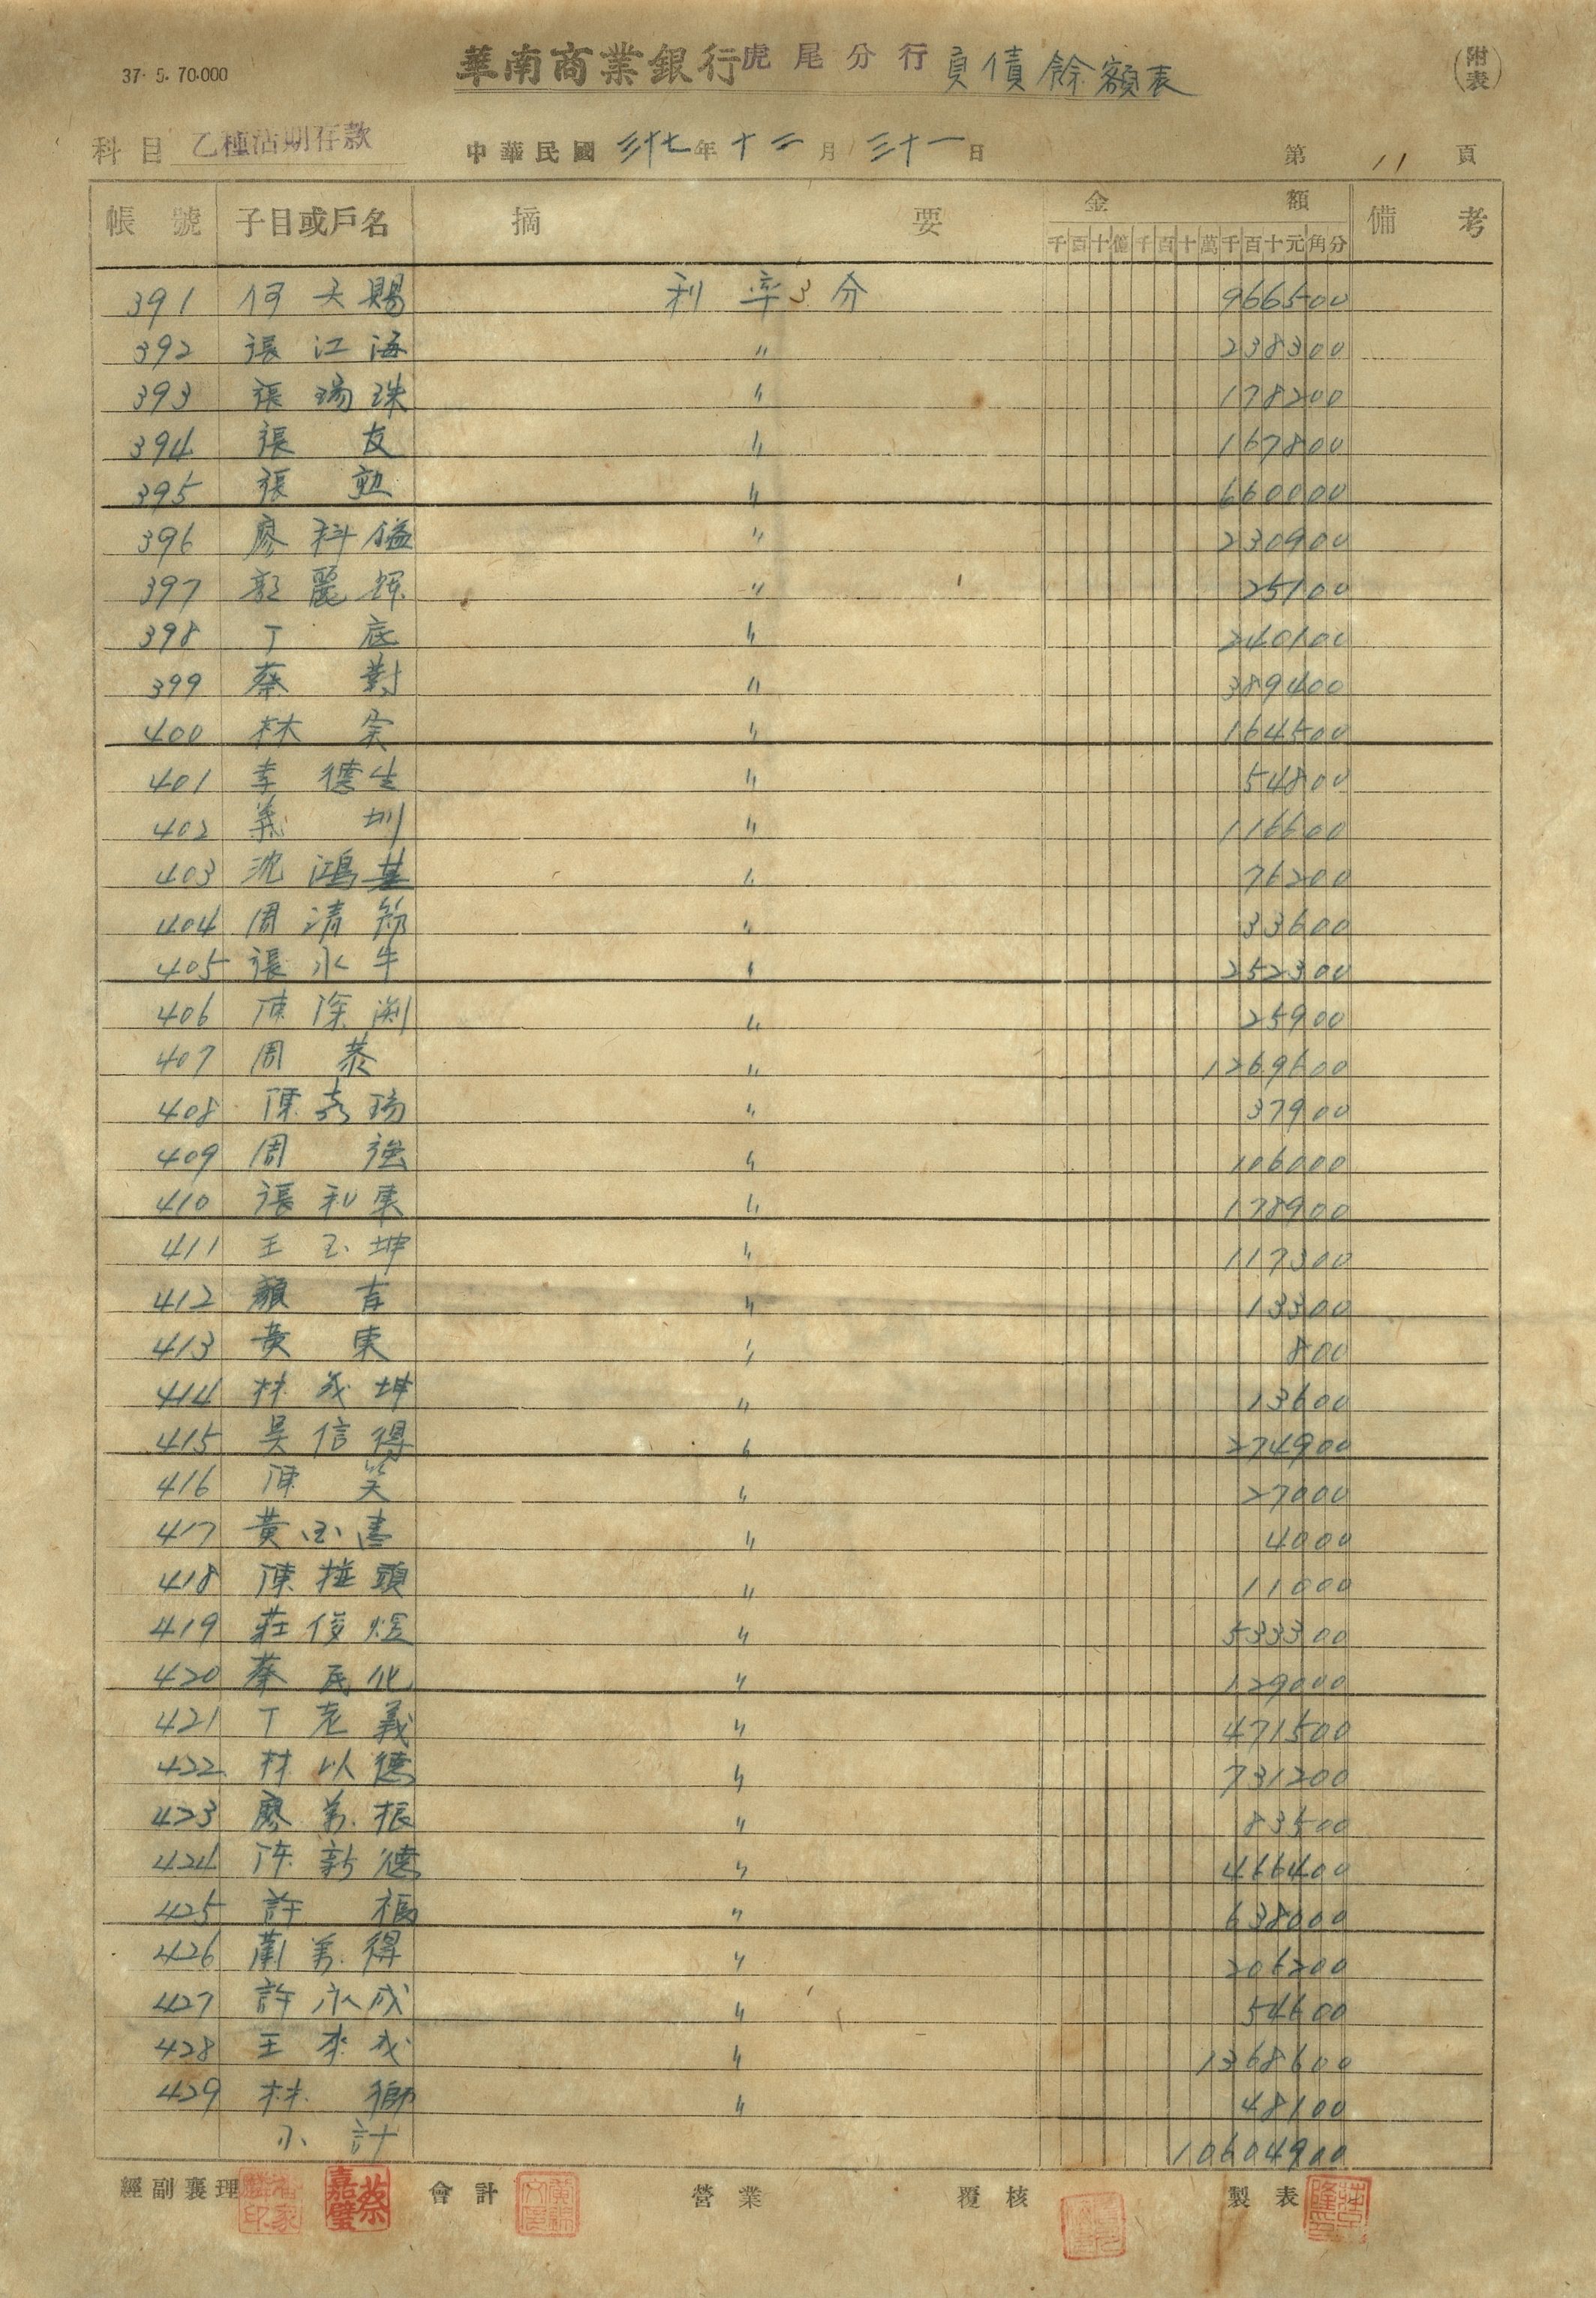 37. 5. 70.000
華南商業銀行虎尾分行負債餘額表
(附表)
科目 乙種活期存款 中華民國 三十七年十二月三十一日 第 11 頁
帳號 子目或戶名 摘要 金額 備考
千百十億千百十萬千百十元角分
391 何天賜 利率3分 966500
392 張江海 〃 238300
393 張瑞珠 〃 178200
394 張友 〃 167800
395 張勲 〃 660000
396 廖科 〃 230900
397 郭麗輝 〃 25100
398 丁底 〃 240100
399 蔡對 〃 389400
400 林宗 〃 164500
401 李德生 〃 54800
402 義圳 〃 116600
403 沈鴻基 〃 76200
404 周清 〃 33600
405 張水牛 〃 252300
406 陳深渊 〃 25900
407 周恭 〃 1269600
408 陳嘉瑞 〃 37900
409 周強 〃 106000
410 張和東 〃 178900
411 王玉坤 〃 117300
412 顏吉 〃 13300
413 黃東 〃 800
414 林茂坤 〃 13600
415 吳信得 〃 274900
416 陳笑 〃 27000
417 黃玉書 〃 4000
418 陳頭 〃 11000
419 莊俊煜 〃 533300
420 蔡民化 〃 129000
421 丁老義 〃 471500
422 林以德 〃 731200
423 廖弟振 〃 83500
424 陳新德 〃 466400
425 許福 〃 638000
426 得 〃 206200
427 許永成 〃 54600
428 王來成 〃 1368600
429 林 〃 48100
小計 10604900
經副襄理 蔡嘉璧 會計 營業 覆核 製表